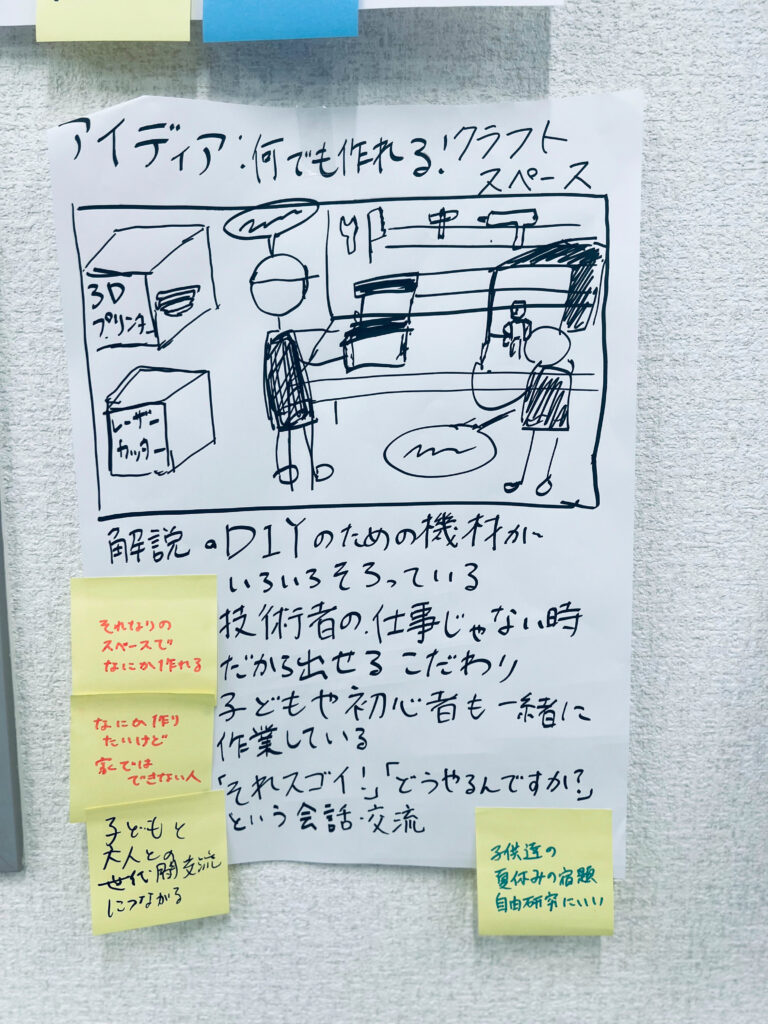 アイディア:何でも作れる!クラフト
スペース
3D
プリンター
レーザー
カッター
解説 •DIYのための機材が
いろいろそろっている
技術者の.仕事じゃない時
だから出せるこだわり
子どもや初心者も一緒に
作業している
「それスゴイ!」「どうやるんですか?」
という会話・交流
それなりの
スペースで
なにか作れる
なにか作り
たいけど
家では
できない人
子どもと
大人との
世代間交流
につながる
子供達の
夏休みの宿題
自由研究にいい